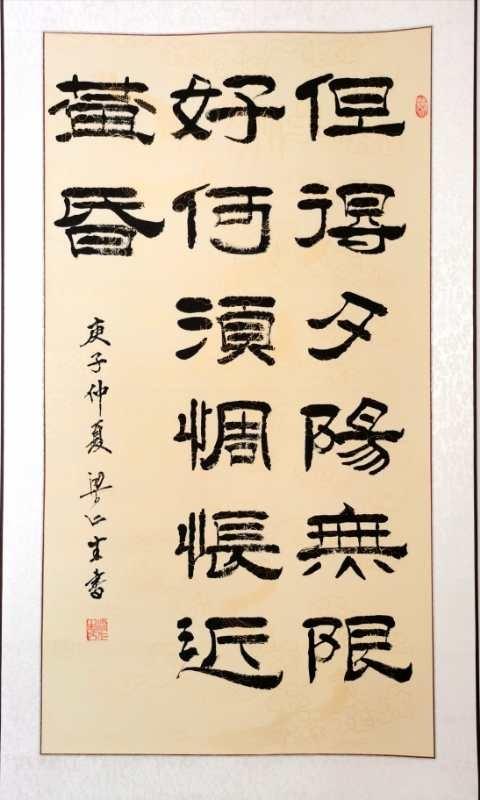 但得夕陽無限
好何須惆悵近
黃昏
庚子仲夏 梁仁生書